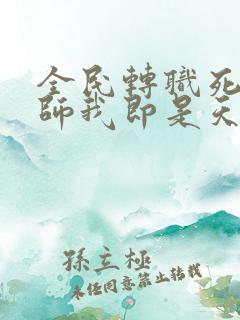 全民轉職死
師我即是天
孫立極
未經同意禁止轉載